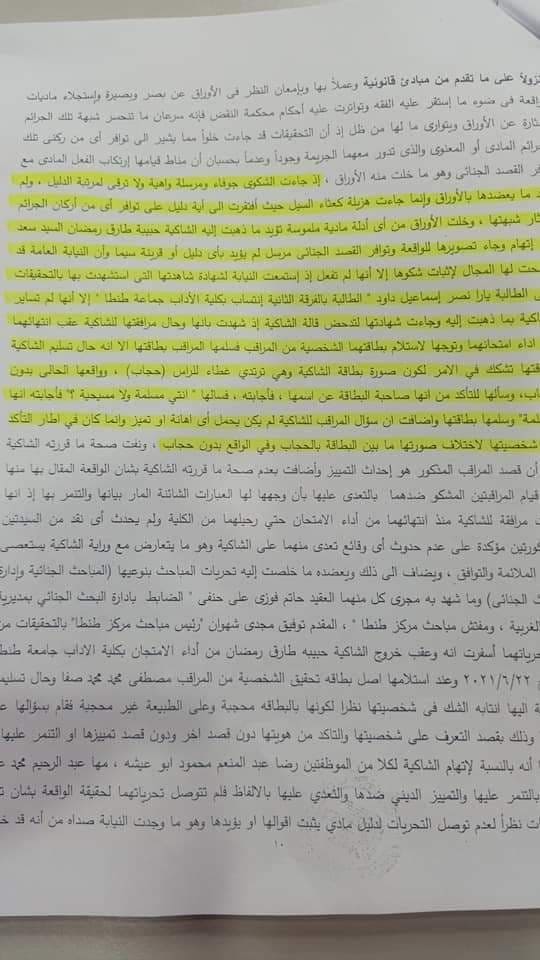 نزولاً على ما تقدم من مبادئ قانونية وعملاً بها وبإمعان النظر فى الأوراق عن بصر وبصيرة وإستجلاء ماديات
واقعة فى ضوء ما إستقر عليه الفقه وتواترت عليه أحكام محكمة النقض فإنه سرعان ما تنحسر شبهة تلك الجرائم
ثارة عن الأوراق ويتوارى ما لها من ظل إذ أن التحقيقات قد جاءت خلواً مما يشير الى توافر أى من ركنى تلك
جرائم المادى أو المعنوى والذى تدور معهما الجريمة وجوداً وعدماً بحسبان أن مناط قيامها إرتكاب الفعل المادى مع
فر القصد الجنائى وهو ما خلت منه الأوراق ، إذ جاءت الشكوى جوفاء ومرسلة واهية ولا ترقى لمرتبة الدليل ، ولم
د ما يعضدها بالأوراق وإنما جاءت هزيلة كغثاء السيل حيث أفتقرت الى أية دليل على توافر أى من أركان الجرائم
ثار شبهتها ، وخلت الأوراق من أى أدلة مادية ملموسة تؤيد ما ذهبت إليه الشاكية حبيبة طارق رمضان السيد سعد
إتهام وجاء تصويرها للواقعة وتوافر القصد الجنائى مرسل لم يؤيد بأى دليل أو قرينة سيما وأن النيابة العامة قد
حت لها المجال لإثبات شكوها إلا أنها لم تفعل إذ إستمعت النيابة لشهادة شاهدتها التى استشهدت بها بالتحقيقات
ى الطالبة يارا نصر إسماعيل داود " الطالبة بالفرقة الثانية إنتساب بكلية الآداب جماعة طنطا " إلا أنها لم تساير
اكية بما ذهبت إليه وجاءت شهادتها لتدحض قالة الشاكية إذ شهدت بانها وحال مرافقتها للشاكية عقب انتهائهما
اداء امتحانهم وتوجها لاستلام بطاقتهما الشخصية من المراقب فسلمها المراقب بطاقتها الا انه حال تسليم الشاكية
قتها تشكك في الامر لكون صورة بطاقة الشاكية وهي ترتدي غطاء للراس (حجاب) ، وواقعها الحالى بدون
اب، وسألها للتأكد من انها صاحبة البطاقة عن اسمها ، فأجابته ، فسالها " انتي مسلمة ولا مسيحية ؟" فأجابته انها
لمة" وسلمها بطاقتها واضافت ان سؤال المراقب للشاكية لم يكن يحمل أى اهانة او تميز وانما كان في اطار التأكد
شخصيتها لاختلاف صورتها ما بين البطاقة بالحجاب وفي الواقع بدون حجاب ، ونفت صحة ما قررته الشاكية
أن قصد المراقب المذكور هو إحداث التمييز وأضافت بعدم صحة ما قررته الشاكية بشان الواقعة المقال بها سنها
قيام المراقبتين المشكو ضدهما بالتعدى عليها بأن وجهها لها العبارات الشائنة المار بيانها والتنمر بها إذ انها
مرافقة للشاكية منذ انتهائهما من أداء الامتحان حتي رحيلهما من الكلية ولم يحدث أى نقد من السيدتين
كورتين مؤكدة على عدم حدوث أى وقائع تعدى منهما على الشاكية وهو ما يتعارض مع ورواية الشاكية يستعصى
الملائمة والتوافق ، ويضاف الى ذلك ويعضده ما خلصت إليه تحريات المباحث بنوعيها (المباحث الجنائية وإدارة
ث الجنائى) وما شهد به مجرى كل منهما العقيد حاتم فوزى على حنفى " الضابط بادارة البحث الجنائي بمديرية
الغربية ، ومفتش مباحث مركز طنطا " ، المقدم توفيق مجدى شهوان "رئيس مباحث مركز طنطا" بالتحقيقات من
تحرياتهما أسفرت انه وعقب خروج الشاكية حبيبه طارق رمضان من أداء الأمتحان بكلية الاداب جامعة طنطا
٢٠٢١/٦/٢٢ وعند استلامها اصل بطاقه تحقيق الشخصية من المراقب مصطفى محمد محمد صفا وحال تسليمه
ة اليها انتابه الشك فى شخصيتها نظرا لكونها بالبطاقه محجبة وعلى الطبيعة غير محجبة فقام بسؤالها عن
وذلك بقصد التعرف على شخصيتها والتاكد من هويتها دون قصد اخر ودون قصد تمييزها او التنمر عليها
ا أنه بالنسبة لإتهام الشاكية لكلا من الموظفتين رضا عبد المنعم محمود ابو عيشه ، مها عبد الرحيم محمد
بالتنمر عليها والتمييز الديني ضدها والتعدي عليها بالالفاظ فلم تتوصل تحرياتهما لحقيقة الواقعة بشان
ات نظراً لعدم توصل التحريات لدليل مادي يثبت اقوالها او يؤيدها وهو ما وجدت النيابة صداه من أنه قد
١٠